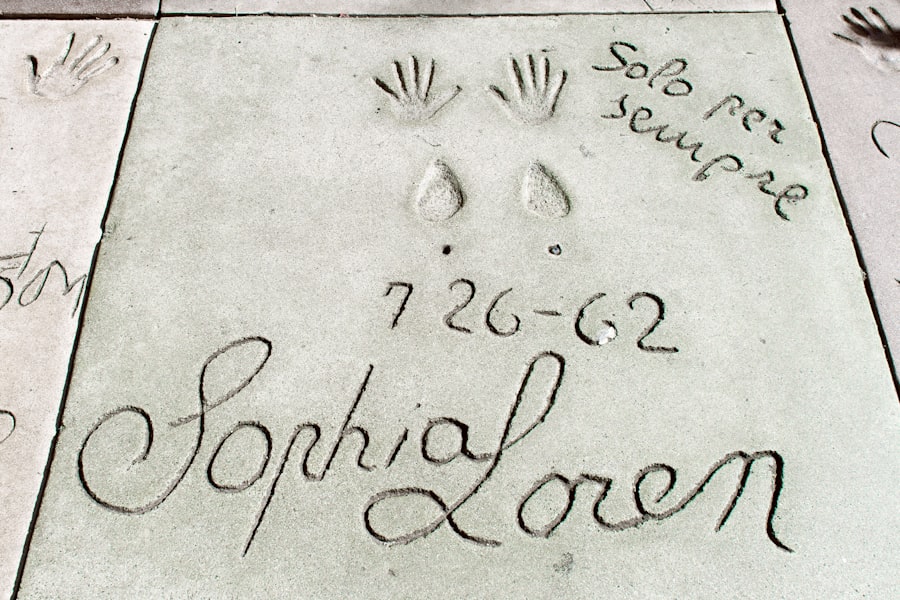 Solo per
sempre
7 26-62
Sophia Loren